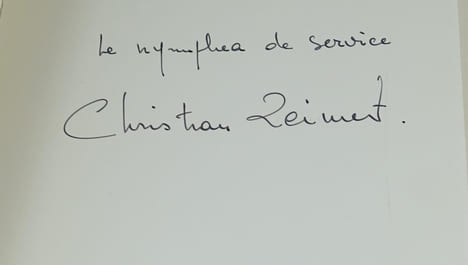 Le nymphea de service
Christian Zeimert.